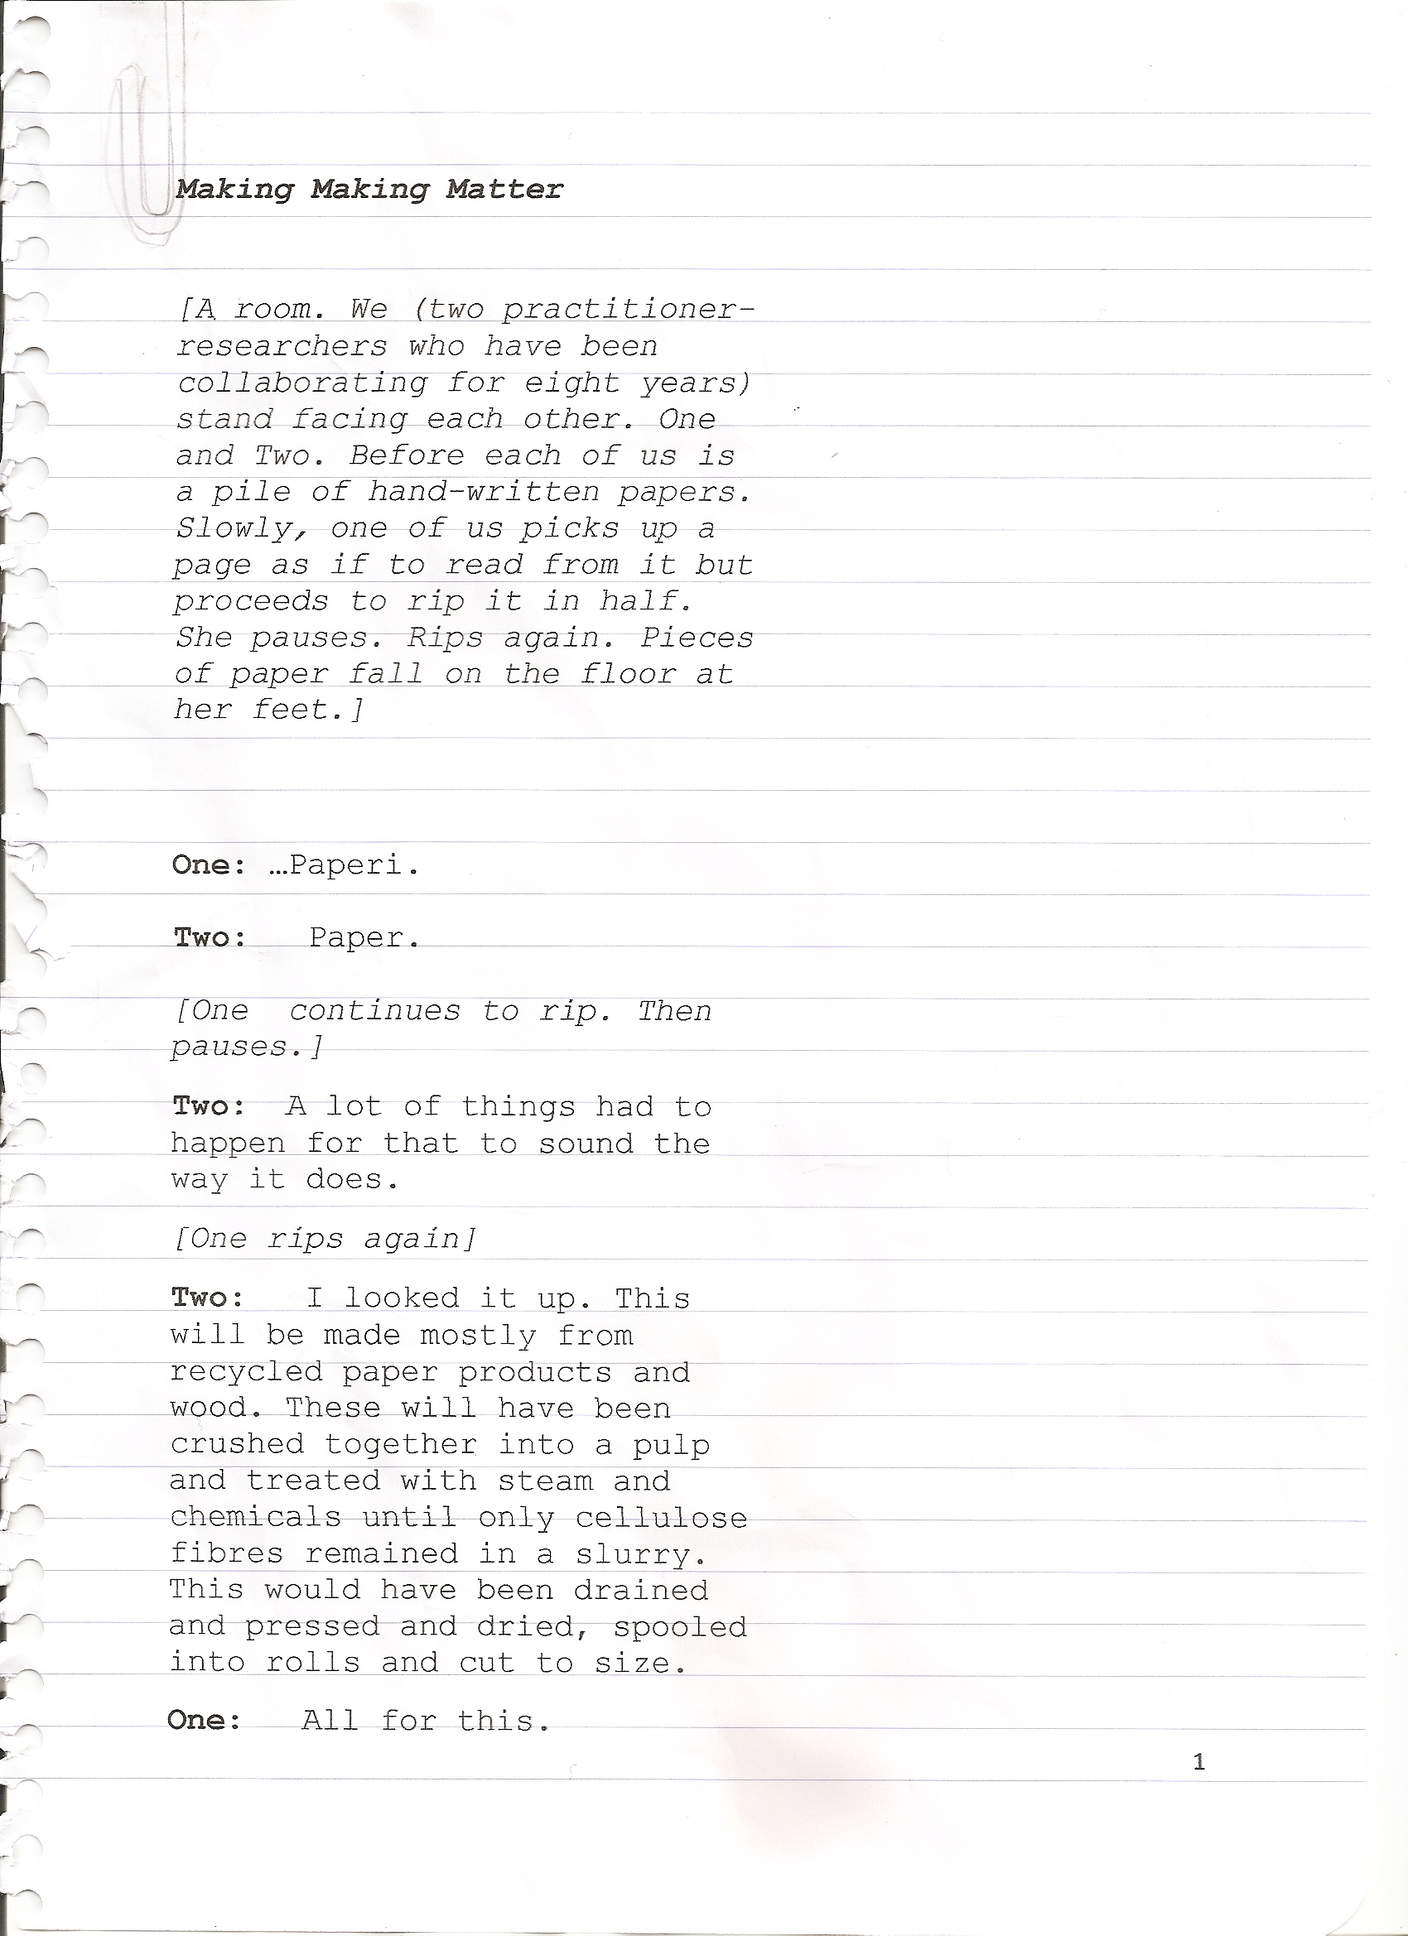 Making Making Matter
[A room. We (two practitioner-
researchers who have been
collaborating for eight years)
stand facing each other. One
and Two. Before each of us is
a pile of hand-written papers.
Slowly, one of us picks up a
page as if to read from it but
proceeds to rip it in half.
She pauses. Rips again. Pieces
of paper fall on the floor at
her feet.]
One: …Paperi.
Two: Paper.
[One continues to rip. Then
pauses.]
Two: A lot of things had to
happen for that to sound the
way it does.
[One rips again]
Two: I looked it up. This
will be made mostly from
recycled paper products and
wood. These will have been
crushed together into a pulp
and treated with steam and
chemicals until only cellulose
fibres remained in a slurry.
This would have been drained
and pressed and dried, spooled
into rolls and cut to size.
One: All for this.
1